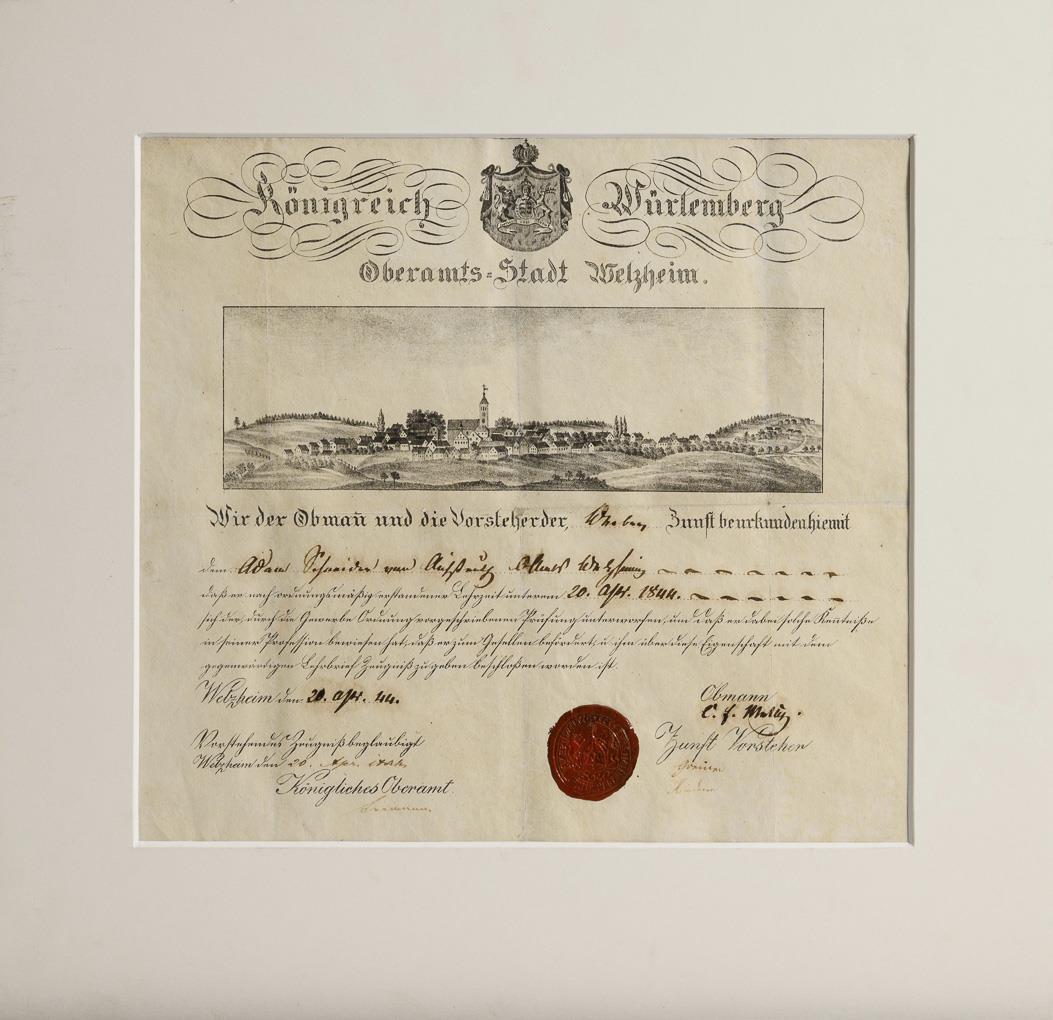 Königreich Würtemberg
Oberamts=Stadt Welzheim.
Wir der Obmañ und die Vorsteher der, Weber Zunft beurkunden hiemit
dem Adam Schneider von
daß er nach ordnungsmäßig erstandener Lehrzeit unterem 20. Apr. 1844.
sich der, durch die Gewerbe Ordnung vorgeschriebenen Prüfung unterworfen, und daß er dabei solche Keñtniße
in seiner Profession bewiesen hat, daß er zum Gesellen befördert, u. ihm über diese Eigenschaft mit dem
gegenwärtigen Lehrbrief Zeugniß zu geben beschloßen worden ist.
Welzheim den 20. Apr. 44.
Obmann
C. F.
Vorstehendes Zeugniß beglaubigt
Welzheim den 20. Apr. 1844.
Zunft Vorsteher
Königliches Oberamt.